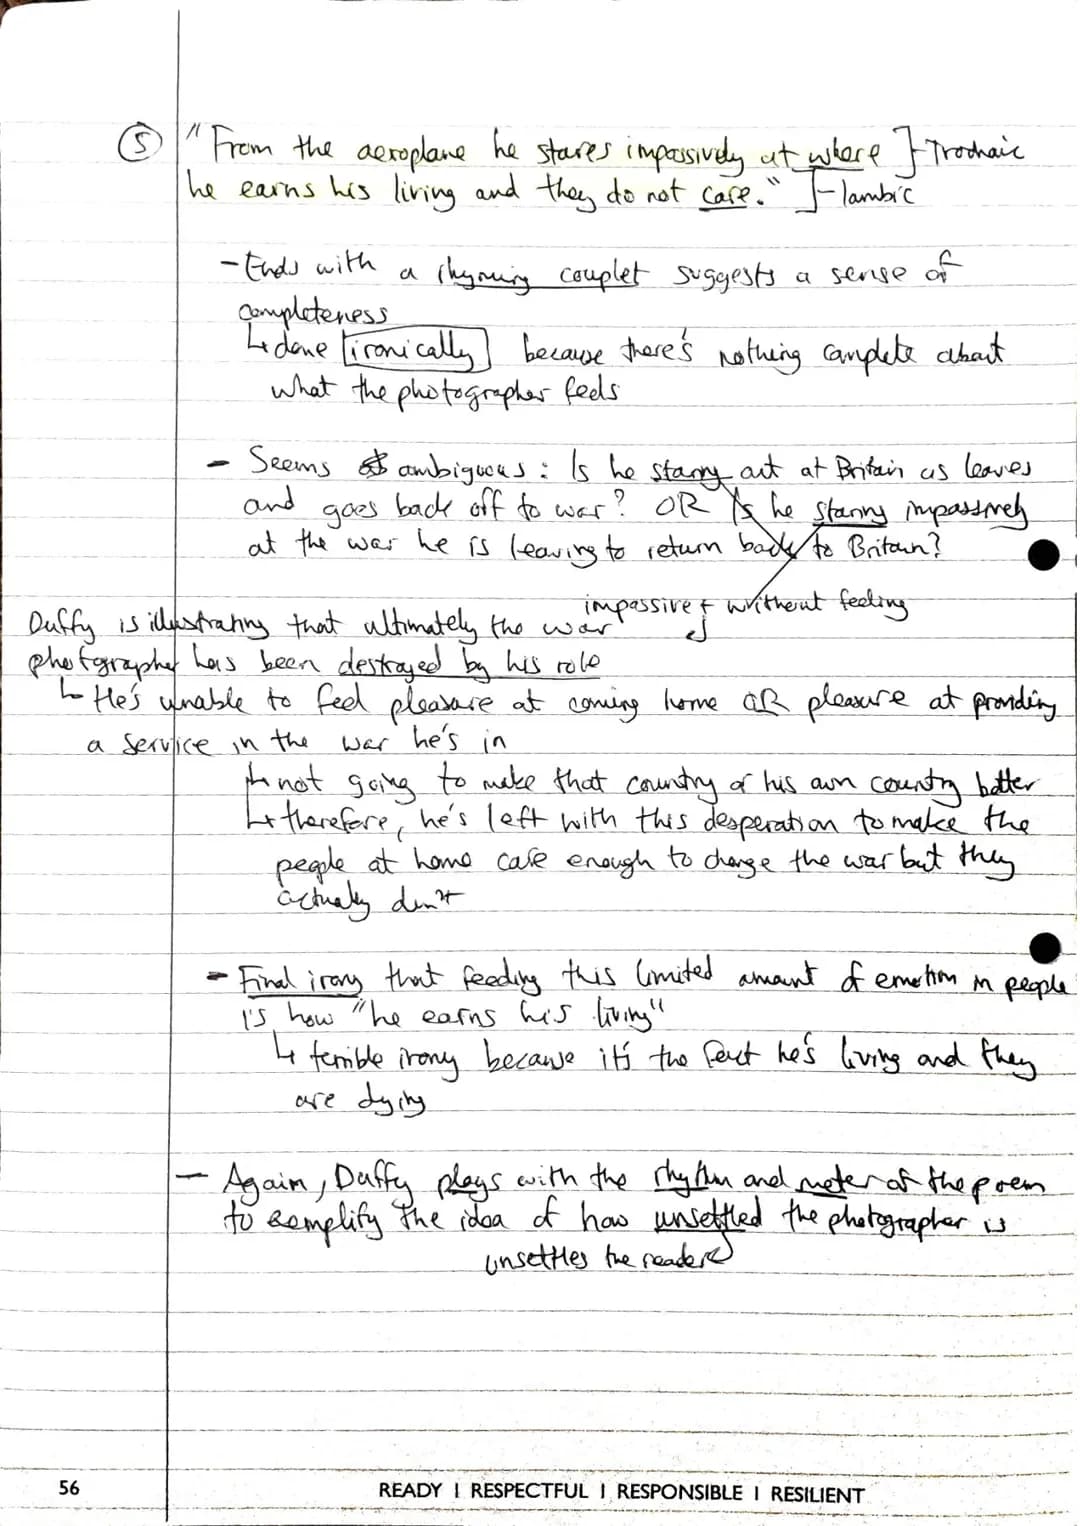 5 "From the aeroplane he stares impassively at where ]- Trochaic
he earns his living and they do not care." ]- Iambic
- Ends with a rhyming couplet suggests a sense of
completeness
↳ done [ironically] because there's nothing complete about
what the photographer feels
- Seems ambiguous: Is he staring out at Britain as leaves
and goes back off to war? OR Is he staring impassively
at the war he is leaving to return back to Britain?
impassive + without feeling
Duffy is illustrating that ultimately the war
photographer has been destroyed by his role
↳ He's unable to feel pleasure at coming home OR pleasure at providing
a service in the war he's in
↳ not going to make that country or his own country better
↳ therefore, he's left with this desperation to make the
people at home care enough to change the war but they
actually don't
- Final irony that feeding this limited amount of emotion in people
is how "he earns his living"
↳ terrible irony because it's the fact he's living and they
are dying
- Again, Duffy plays with the rhythm and meter of the poem
to exemplify the idea of how unsettled the photographer is
unsettles the reader
56
READY | RESPECTFUL | RESPONSIBLE | RESILIENT